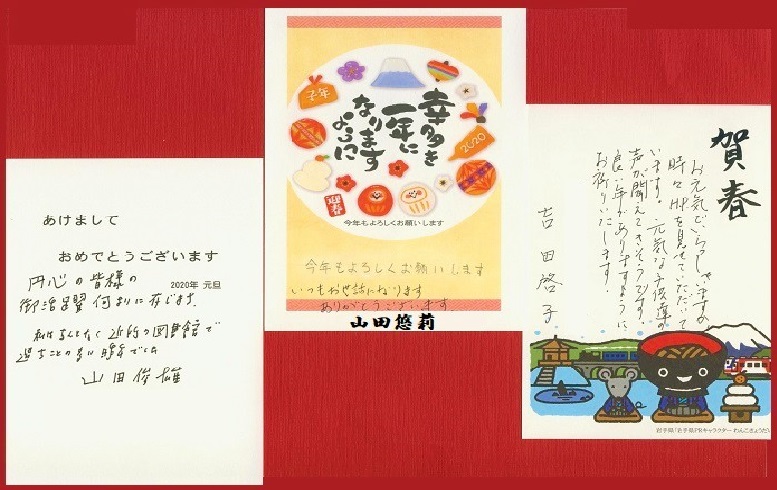 あけまして
おめでとうございます
2020年 元旦
円心の皆様の
御活躍 何よりに存じます。
山田俊雄
子年
2020
幸多き
一年に
なります
ように
迎春
今年もよろしくお願いします
今年もよろしくお願いします
いつもお世話になります
ありがとうございます。
山田悠莉
賀春
お元気でいらっしゃいますか
時々HPを見せていただいて
います。元気な子供達の
声が聞えてきそうです!
良い年でありますように
お祈りいたします!
吉田啓子
岩手県「岩手県PRキャラクター わんこきょうだい